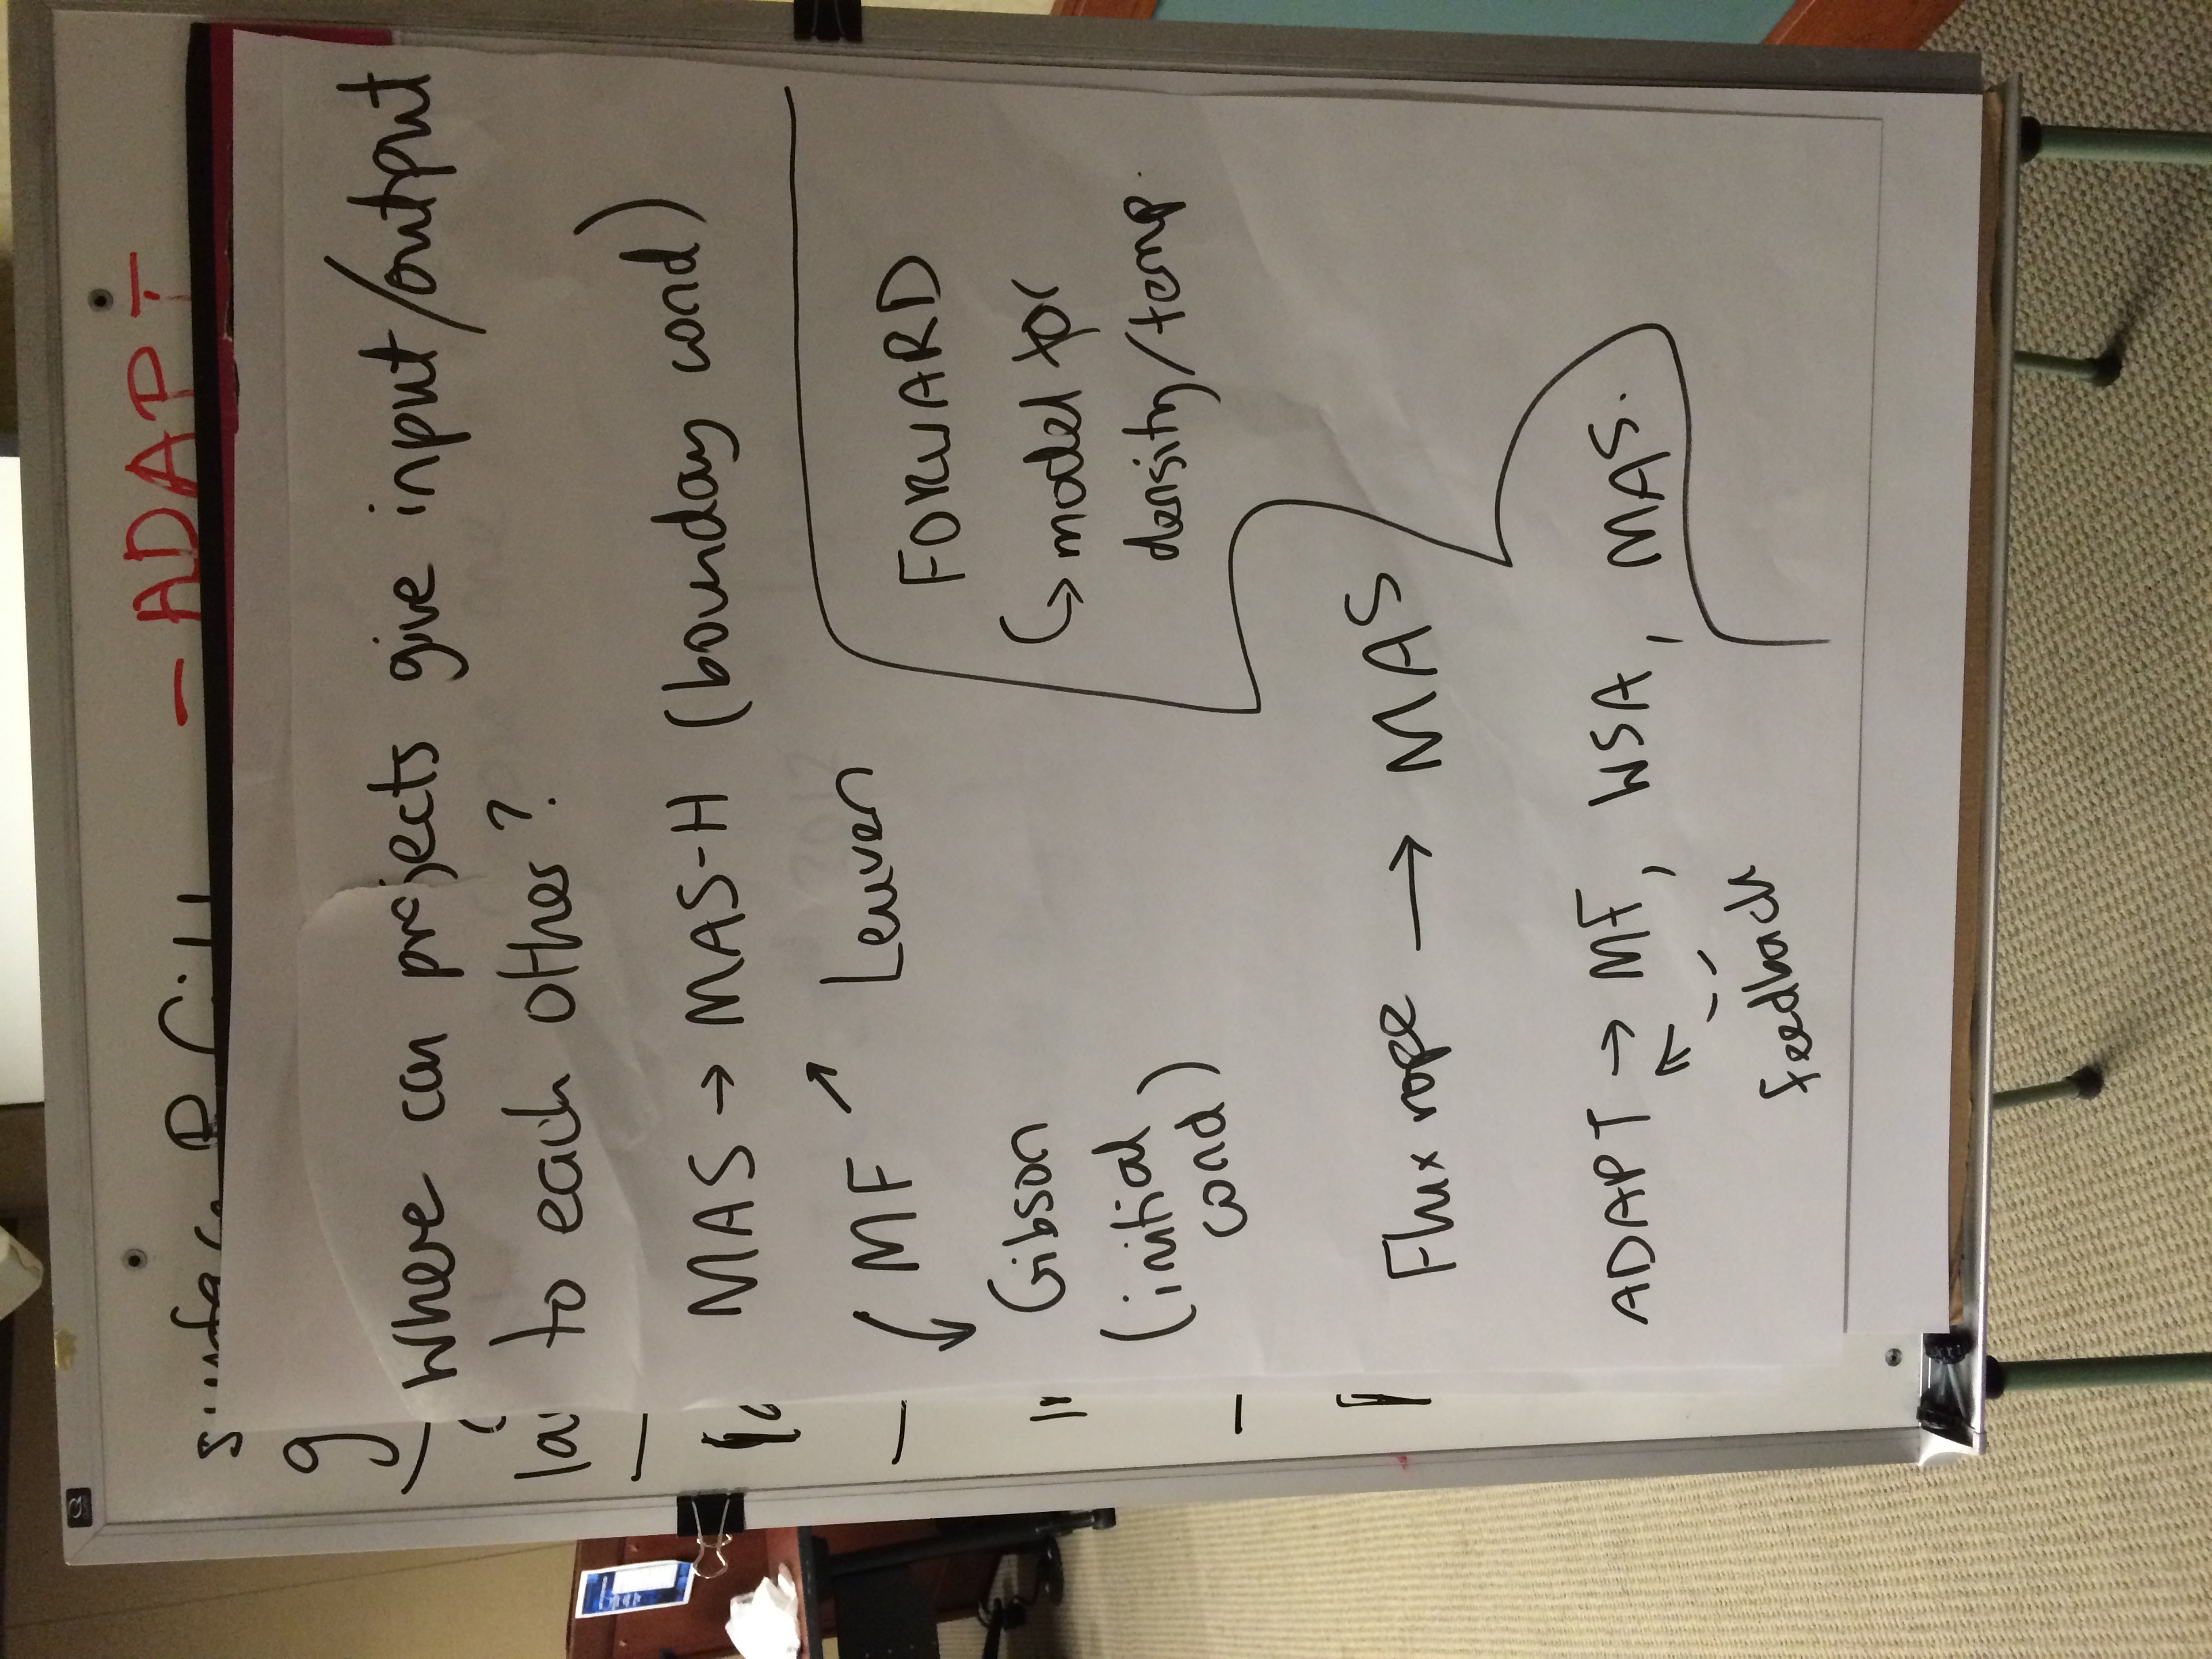 - ADAPT
Where can projects give input/output
to each other?
MAS → MAS-H (bounday cond)
MF ↗ Leuven
Gibson
(initial
cond)
FORWARD
↳ model
density/temp.
Flux rope → MAS
ADAPT → MF, WSA, MAS.
feedback